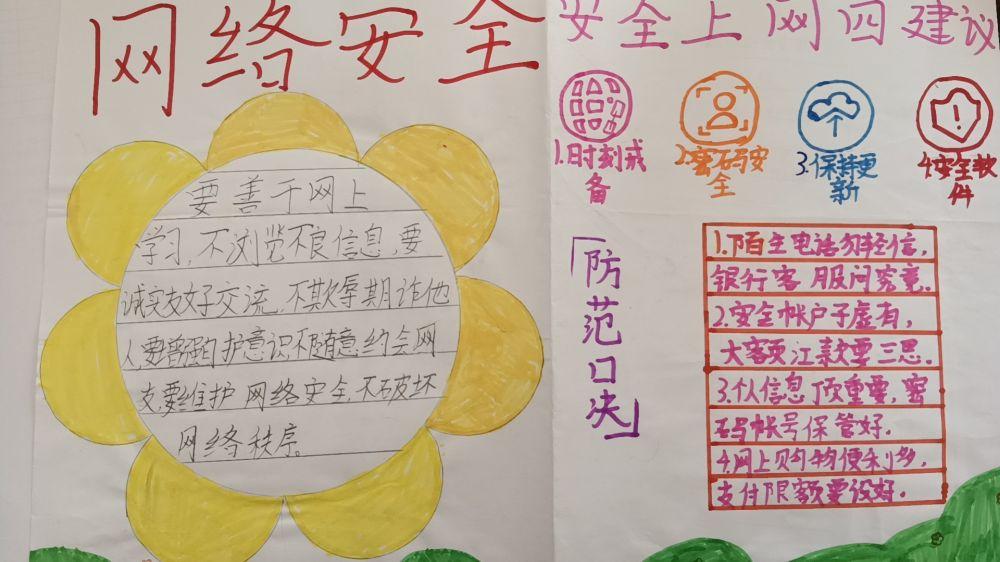 网络安全
要善于网上
学习,不浏览不良信息,要
诚实友好交流,不欺辱期诈他
人,要增强自护意识不随意约会网
友,要维护网络安全,不破坏
网络秩序。
安全上网四建议
1.时刻戒
备
2.密码安
全
3.保持更
新
4.安全软
件
「防范口决」
1.陌生电话勿轻信,
银行客服问究竟.
2.安全帐户子虚有,
大额汇款要三思.
3.个人信息顶重要,密
码帐号保管好.
4.网上购物便利多,
支付限额要设好.